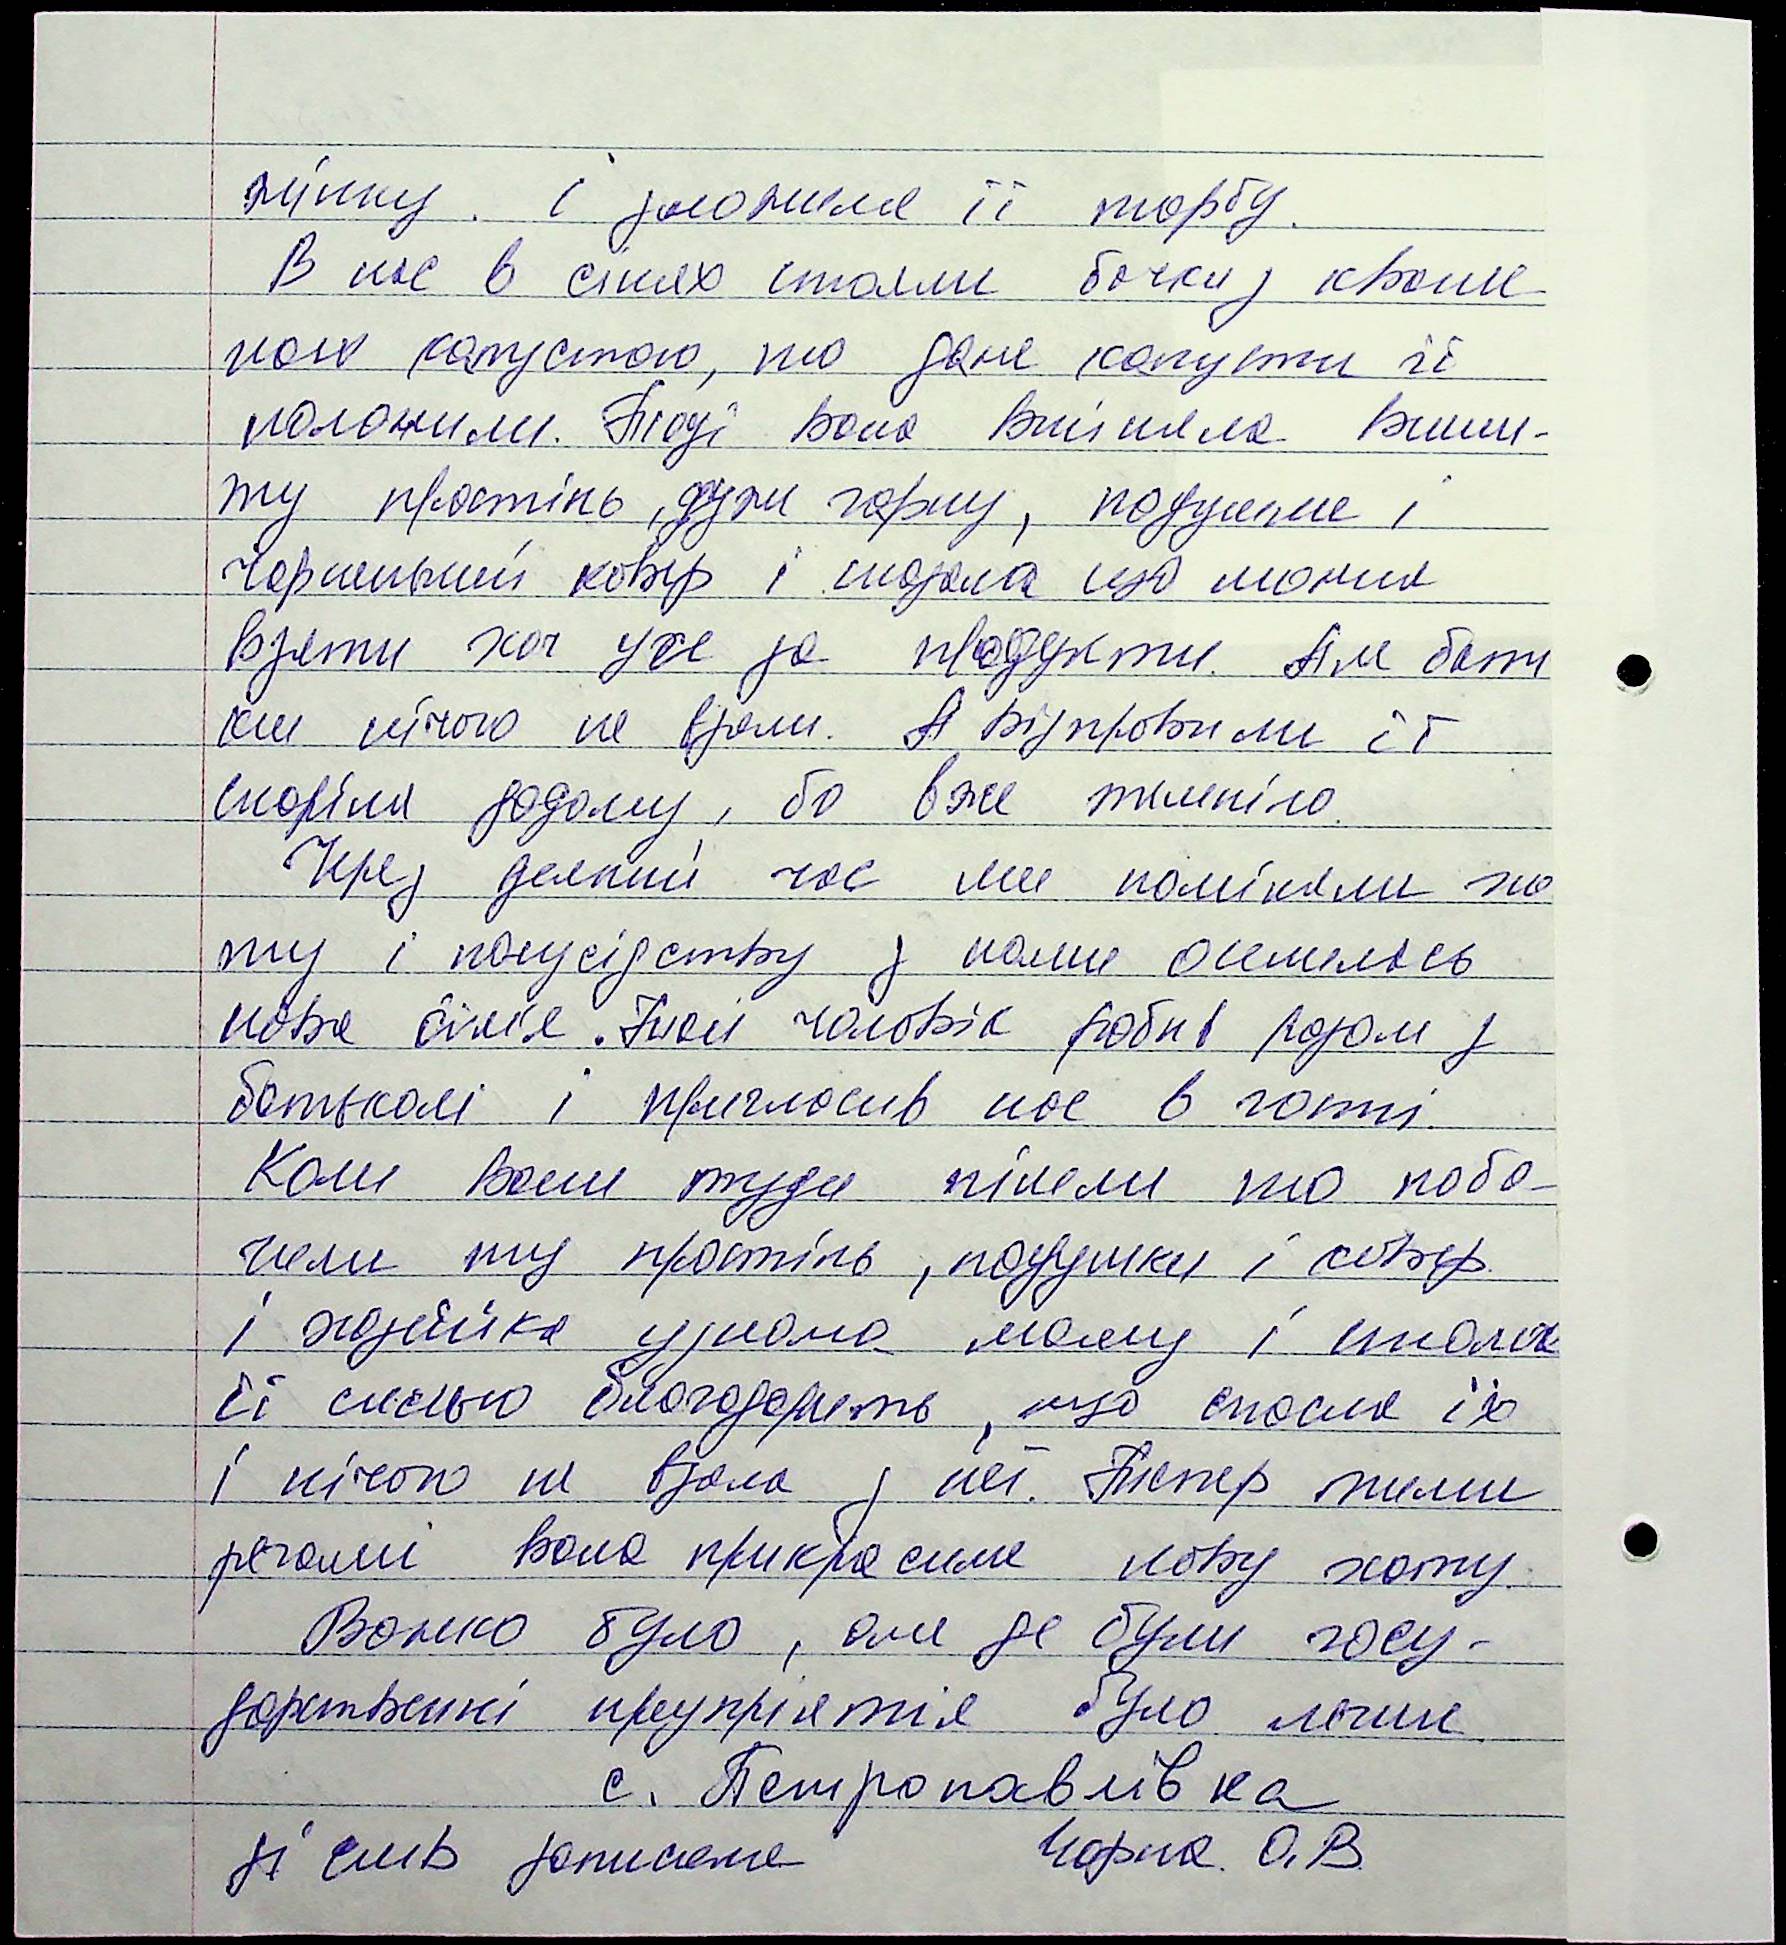 жінку. І зложила її торбу.
В нас в сінях стояли бочки з кваше
ною капустою, то дане капусти їй
положили. Тоді вона вийняла виши-
ту простінь, дуже гарну, подушки і
чорненький ковер і сказала що можна
взяти хоч уже за продукти. Але бать
ки нічого не взяли. А відправили її
скоріше додому, бо вже темніло.
Через деякий час ми поміняли ха
ту і посусідству з нами оселилась
нова сімія. Їхній чоловік робив разом з
батьками і пригласив нас в гості.
Коли вони туди пішли то поба-
чили ту простінь, подушки і ковер.
і хазяйка узнала маму і стала
її сильно благодарить, що спасла їх
і нічого не взяла з неї. Тепер тими
речами вона прикрасила нову хату.
Важко було, але де були госу-
дарственні предпріятія було легше
с. Петропавлівка
зі слів записала Чорна О.В.